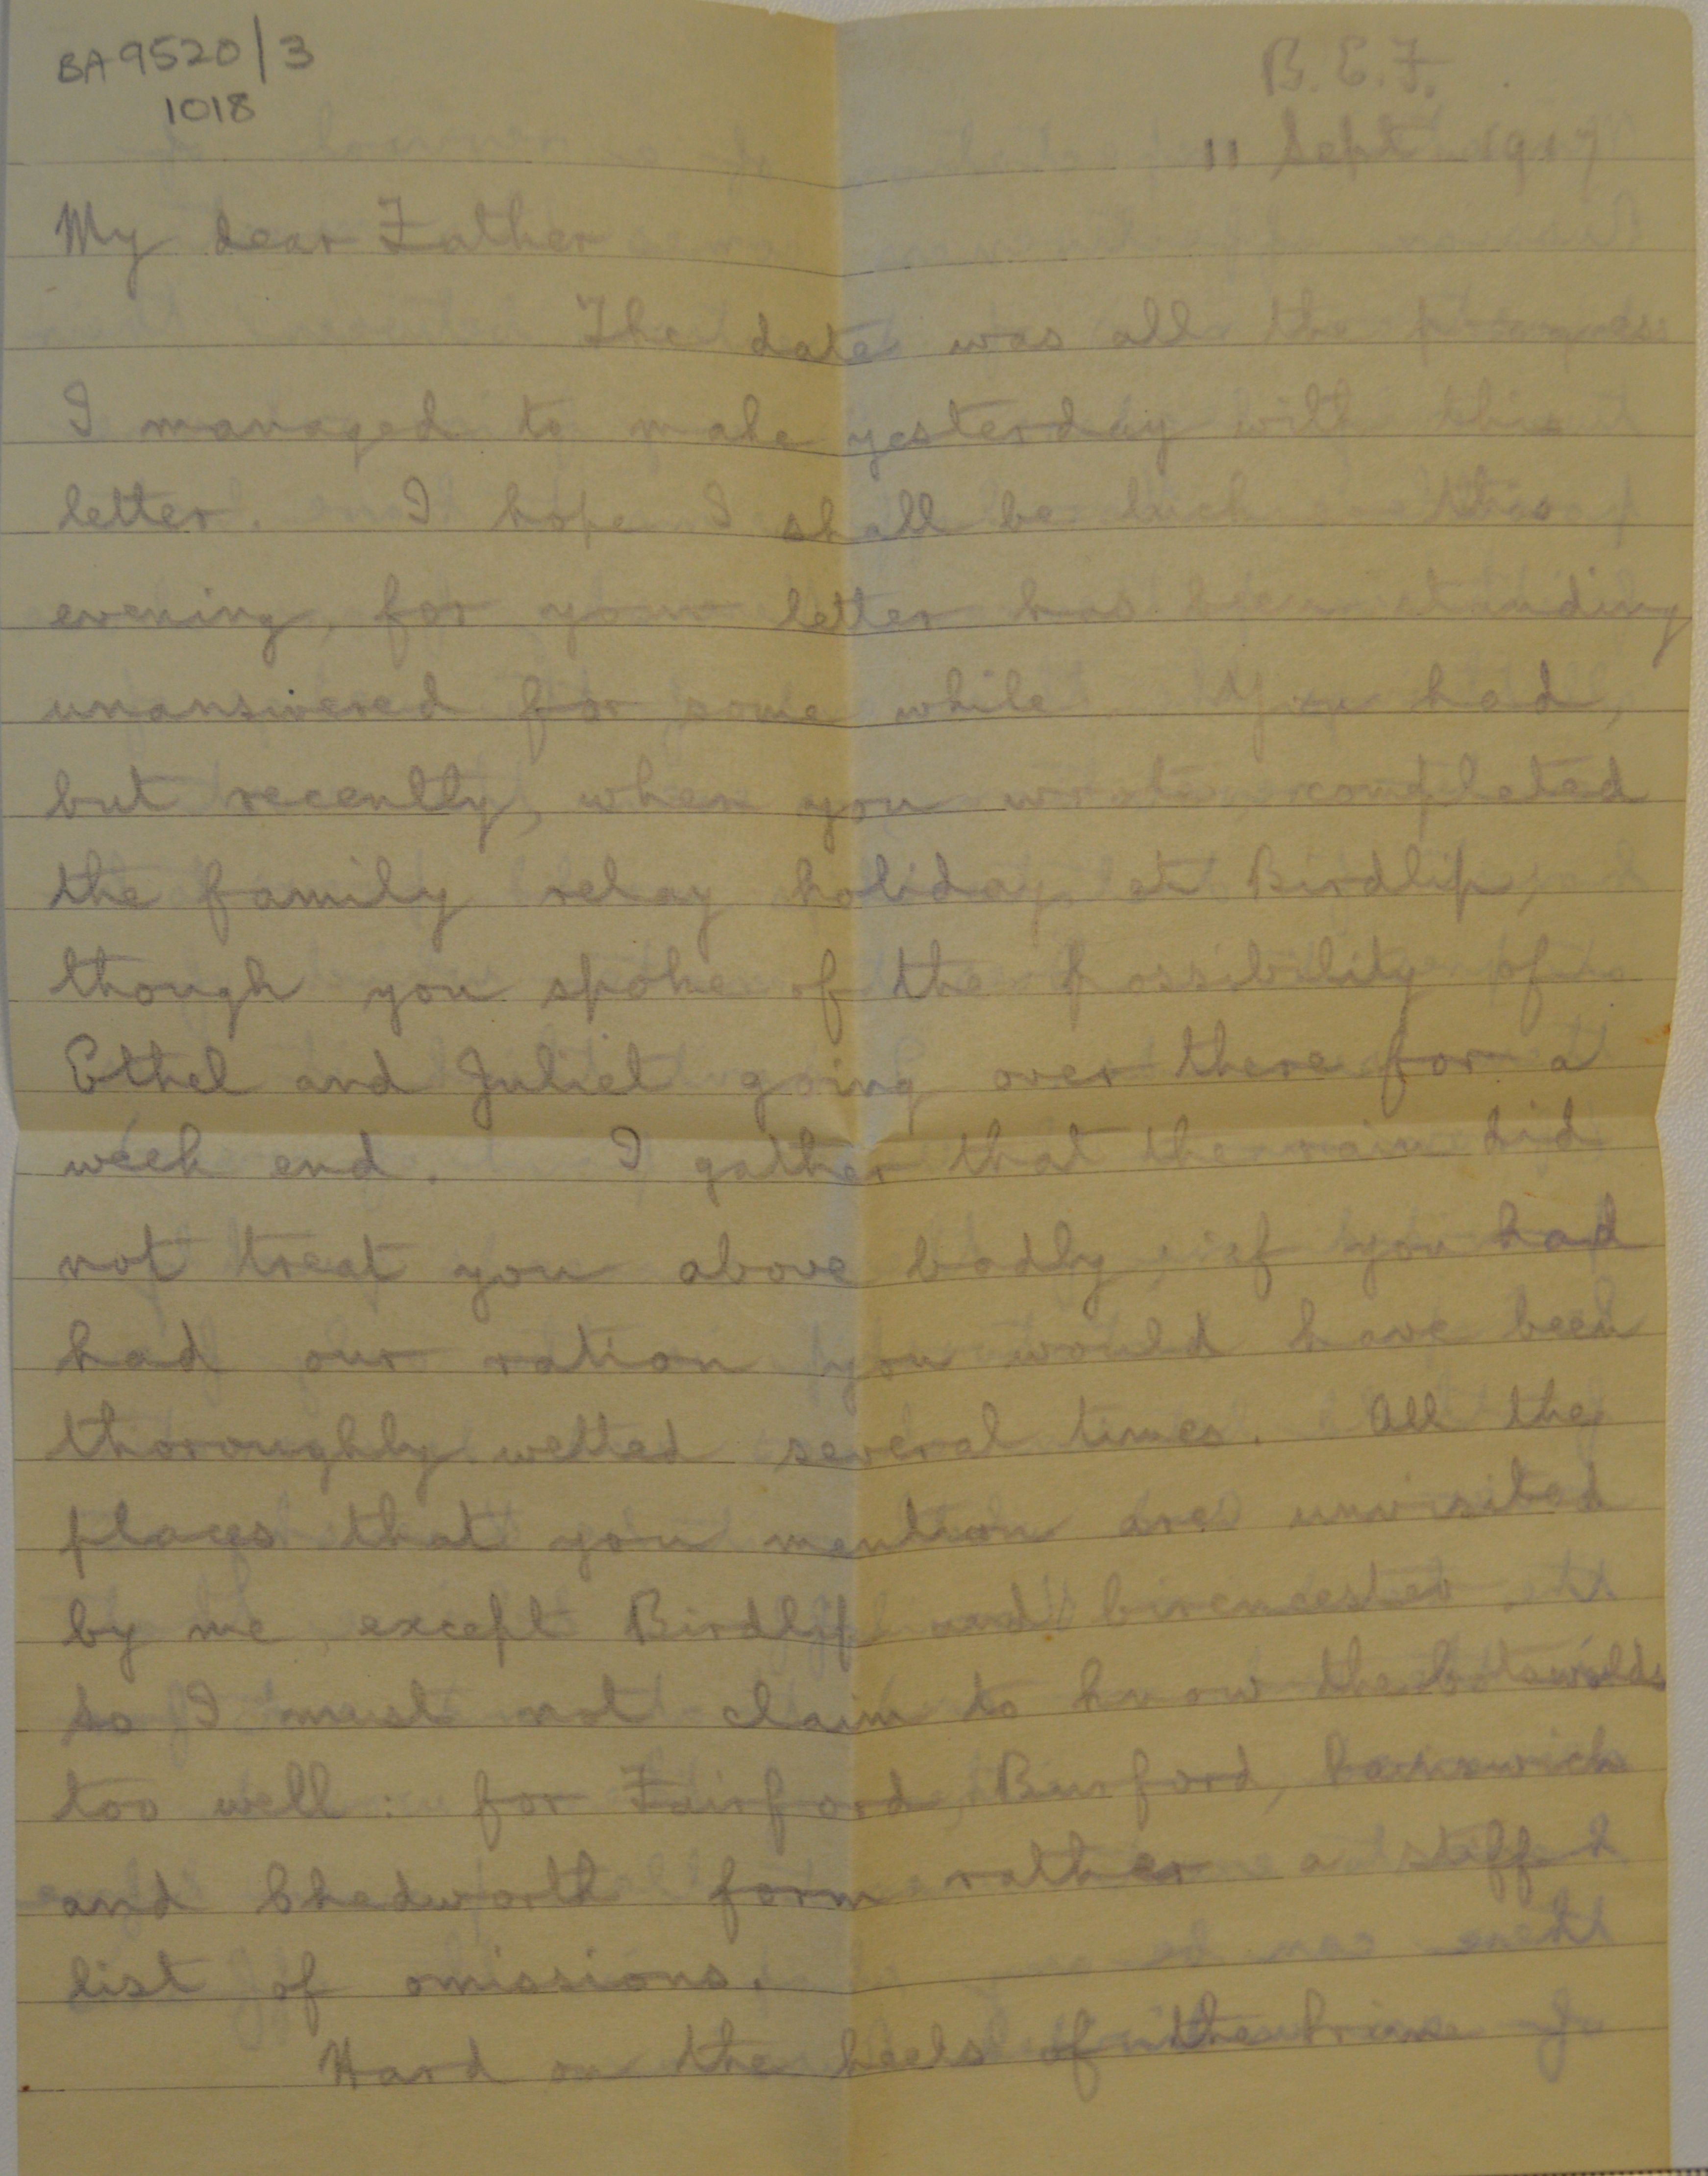 BA 9520/3
1018
B.E.F.
11 Sept 1917
My dear Father
The date was all the progress
I managed to make yesterday with this
letter. I hope I shall be luckier this
evening, for your letter has been standing
unanswered for some while. You had,
but recently, when you wrote, completed
the family relay holiday at Birdlip,
though you spoke of the possibility of
Ethel and Juliet going over there for a
week end. I gather that the rain did
not treat you above badly, if you had
had our ration you would have been
thoroughly wetted several times. All the
places that you mention are unvisited
by me, except Birdlip and Cirencester
so I must not claim to know the Cotswolds
too well: for Fairford, Burford, Painswick
and Chedworth form rather a stiff
list of omissions.
Hard on the heels of the